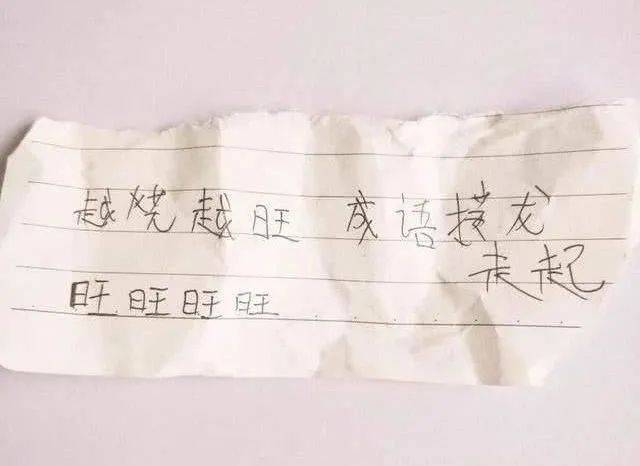 越烧越旺 成语接龙
走起
旺旺旺旺............